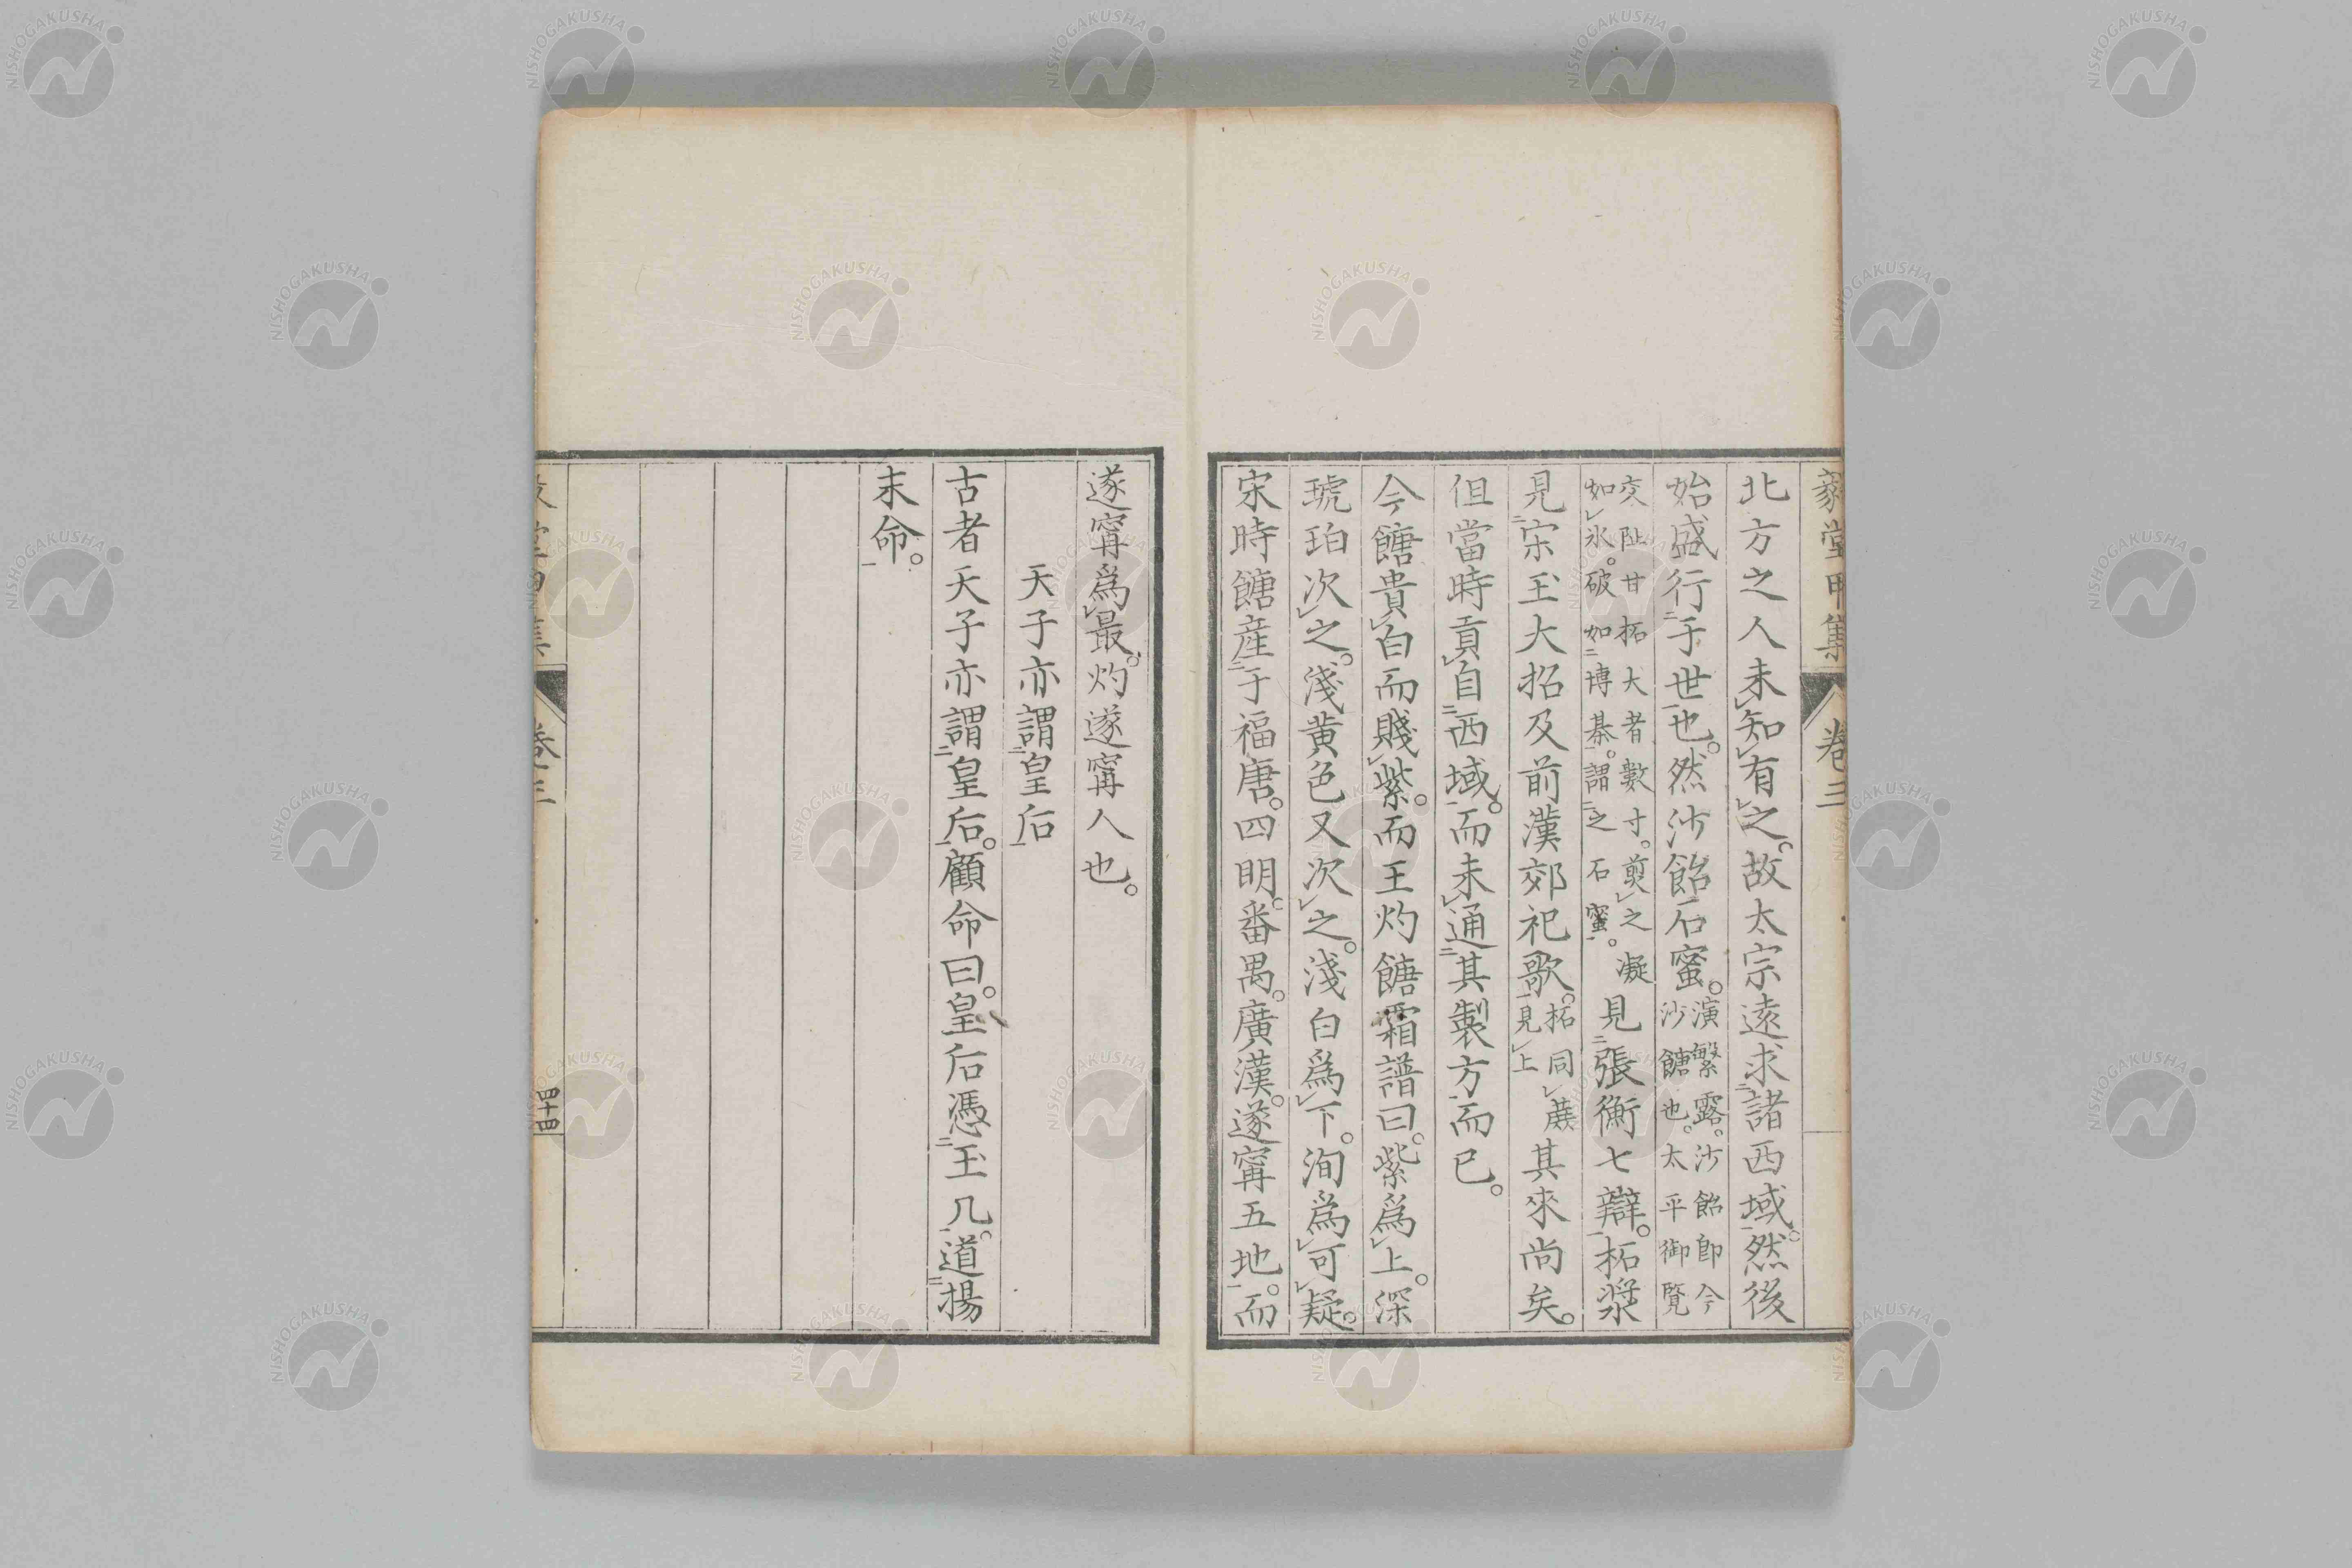 北方之人未知有之。故太宗遠求諸西域。然後
始盛行于世也。然沙飴石蜜。演繁露。沙飴即今沙餹也。太平御覽
交阯甘柘大者數寸。剪之凝如冰。破如博棊。謂之石蜜。見張衡七辯。柘漿
見宋玉大招及前漢郊祀歌。柘同蔗見上其來尚矣。
但當時貢自西域。而未通其製方而已。
今餹貴白而賤紫。而王灼餹霜譜曰。紫爲上。深
琥珀次之。淺黄色又次之。淺白爲下。洵爲可疑。
宋時餹産于福唐。四明。番禺。廣漢。遂寗五地。而
遂寗爲最。灼遂寗人也。
天子亦謂皇后
古者天子亦謂皇后。顧命曰。皇后憑玉几。道揚
末命。
堂甲集
卷三
卷三
四十四
NISHOGAKUSHA